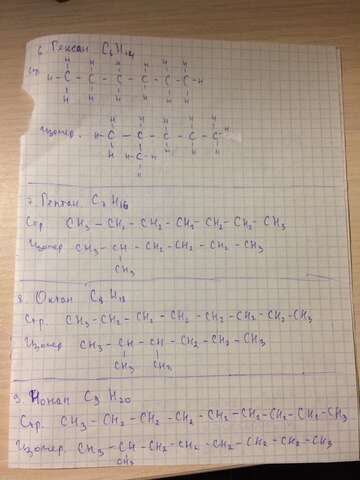 6. Гексан C6H14
H H H H H H
стр. H - C - C - C - C - C - C - H
H H H H H H
H H H H H
Изомер. H - C - C - C - C - C - H
H H H H
H - C - H
H
7. Гептан C7H16
Стр. CH3 - CH2 - CH2 - CH2 - CH2 - CH2 - CH3
Изомер CH3 - CH - CH2 - CH2 - CH2 - CH3
CH3
8. Октан C8H18
Стр. CH3 - CH2 - CH2 - CH2 - CH2 - CH2 - CH2 - CH3
Изомер CH3 - CH - CH - CH2 - CH2 - CH3
CH3 CH3
9. Нонан C9H20
Стр. CH3 - CH2 - CH2 - CH2 - CH2 - CH2 - CH2 - CH2 - CH3
Изомер. CH3 - CH - CH2 - CH2 - CH2 - CH2 - CH2 - CH3
CH3